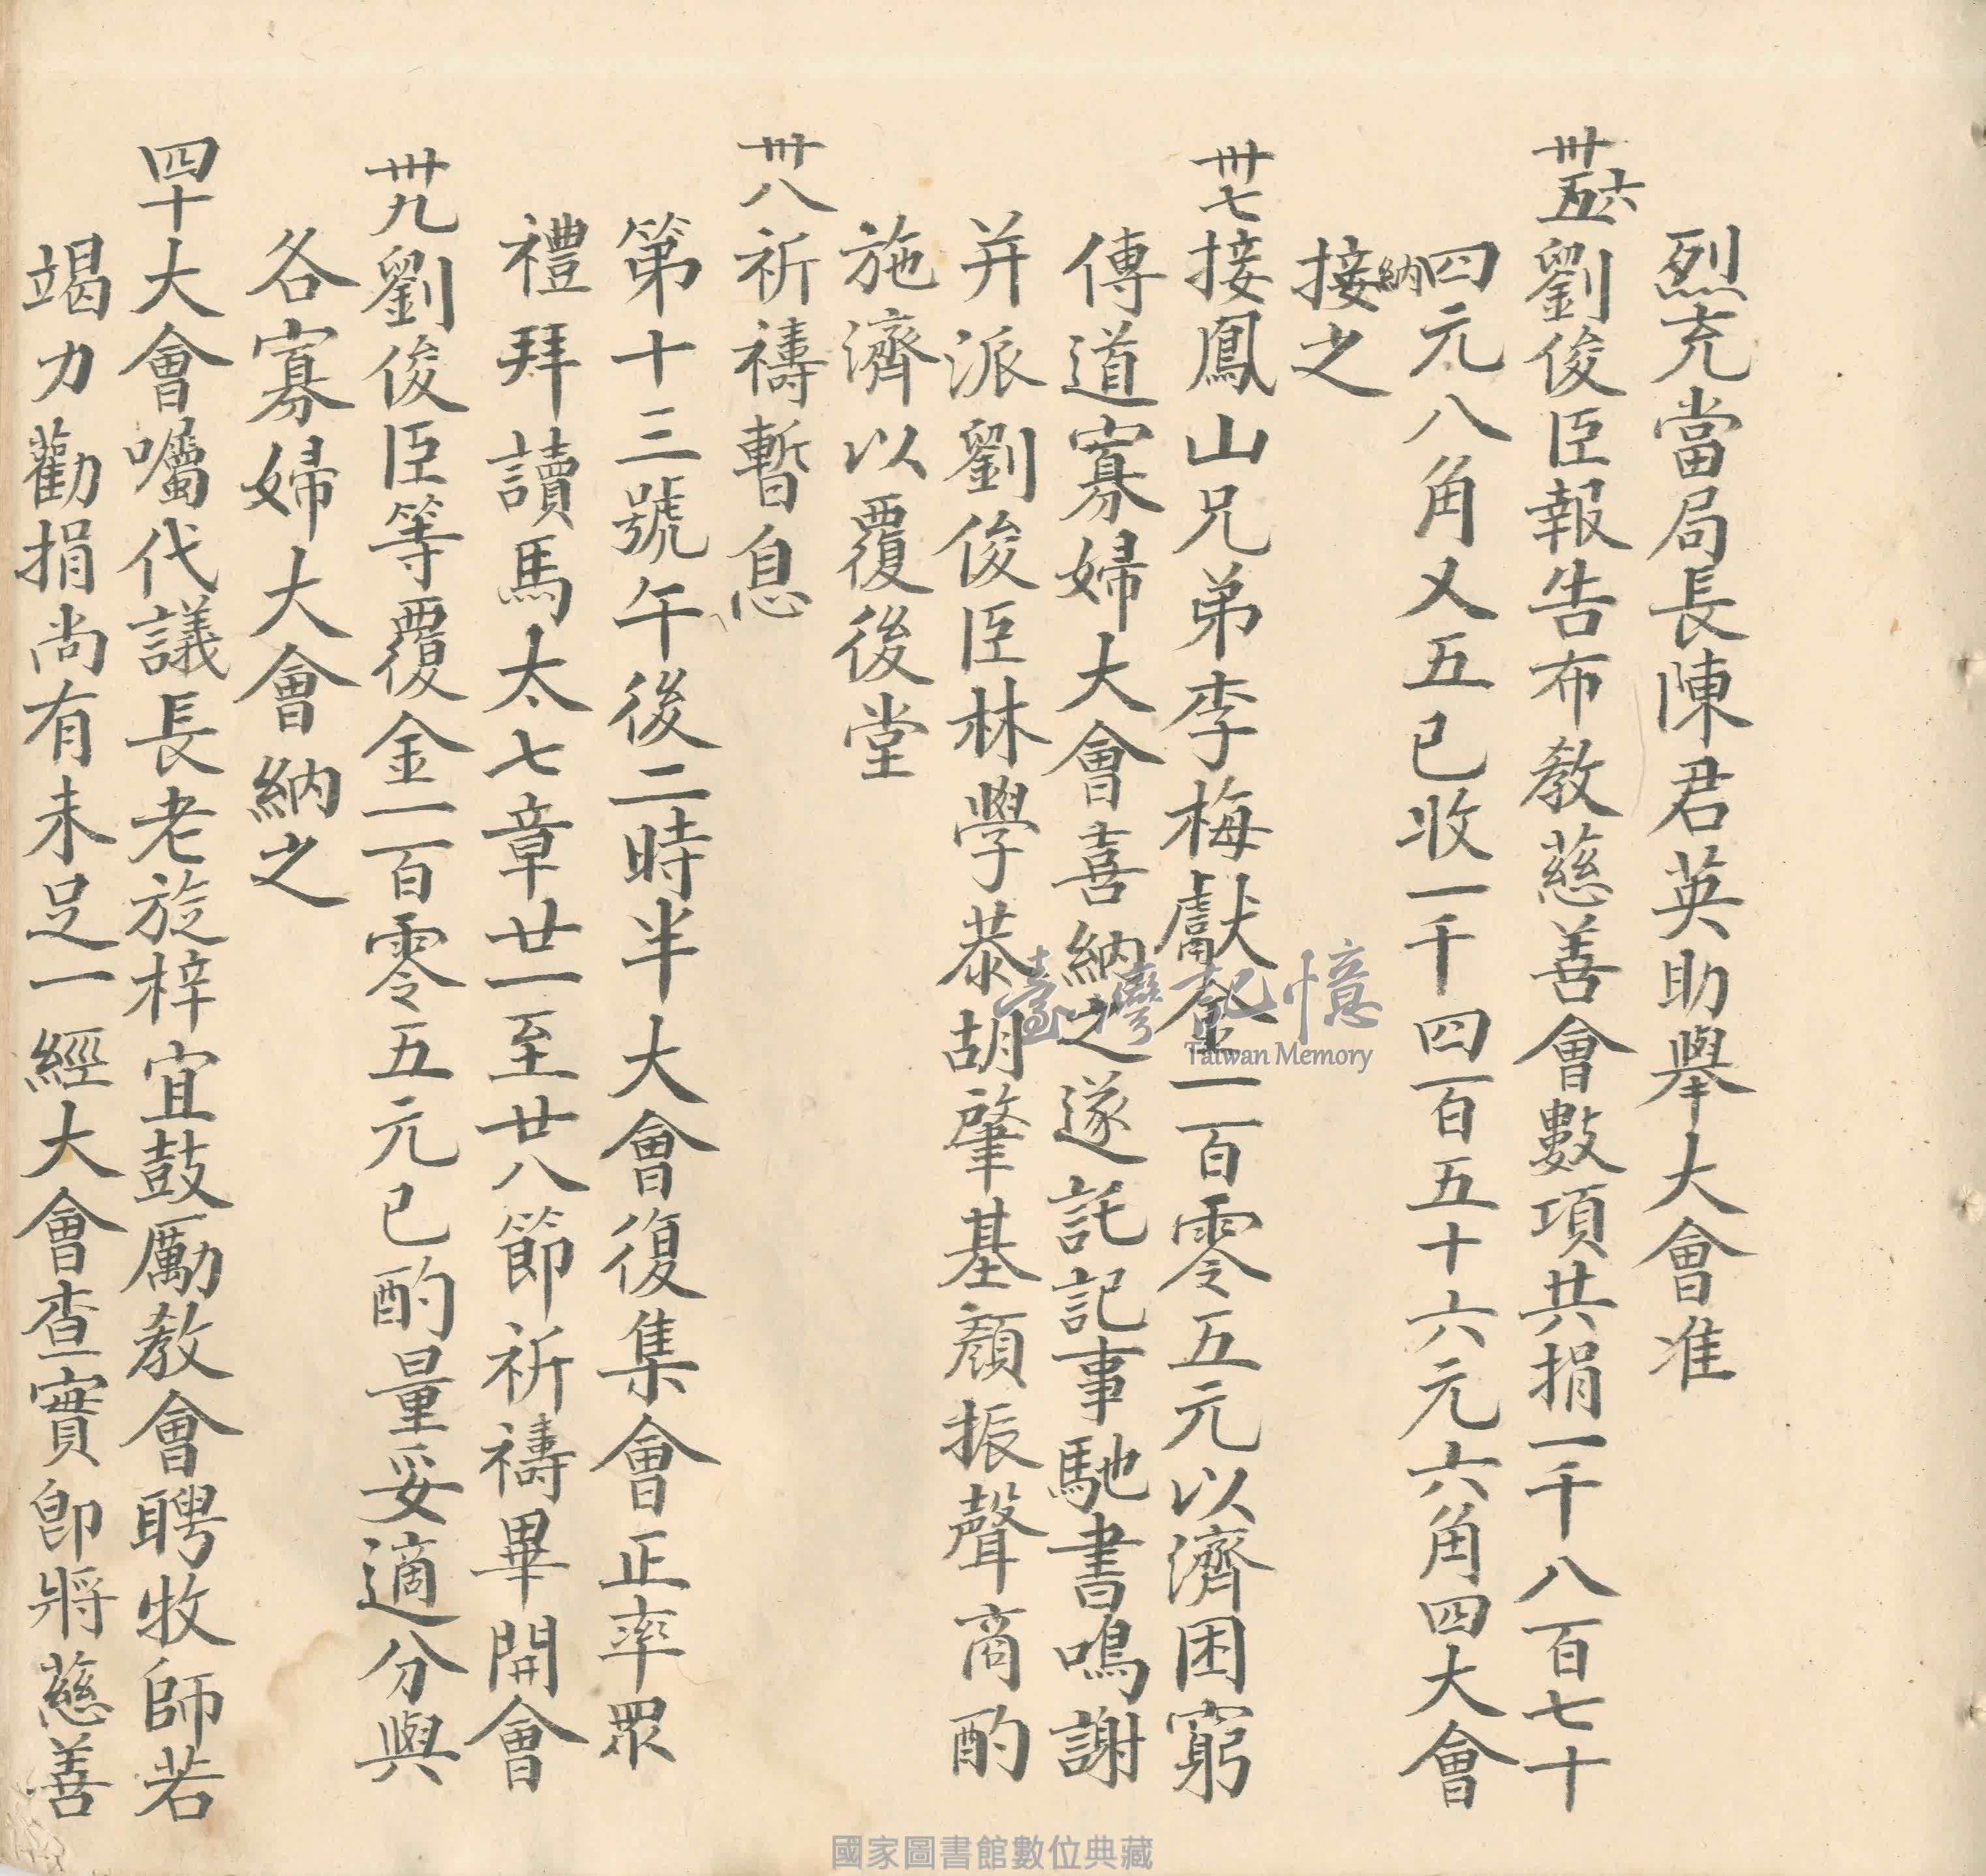 烈充當局長陳君英助舉大會准
卅五六劉俊臣報告布教慈善會數項共捐一千八百七十
四元八角又五已收一千四百五十六元六角四大會
接納之
卅七接鳳山兄弟李梅獻金一百零五元以濟困窮
傳道寡婦大會喜納之遂託記事馳書鳴謝
并派劉俊臣林學恭胡肇基顏振聲商酌
施濟以覆後堂
卅八祈禱暫息
第十三號午後二時半大會復集會正率眾
禮拜讀馬太七章廿一至廿八節祈禱畢開會
卅九劉俊臣等覆金一百零五元已酌量妥適分與
各寡婦大會納之
四十大會囑代議長老旋梓宜鼓厲教會聘牧師若
竭力勸捐尚有未足一經大會查實即將慈善
臺灣記憶
Taiwan Memory
國家圖書館數位典藏